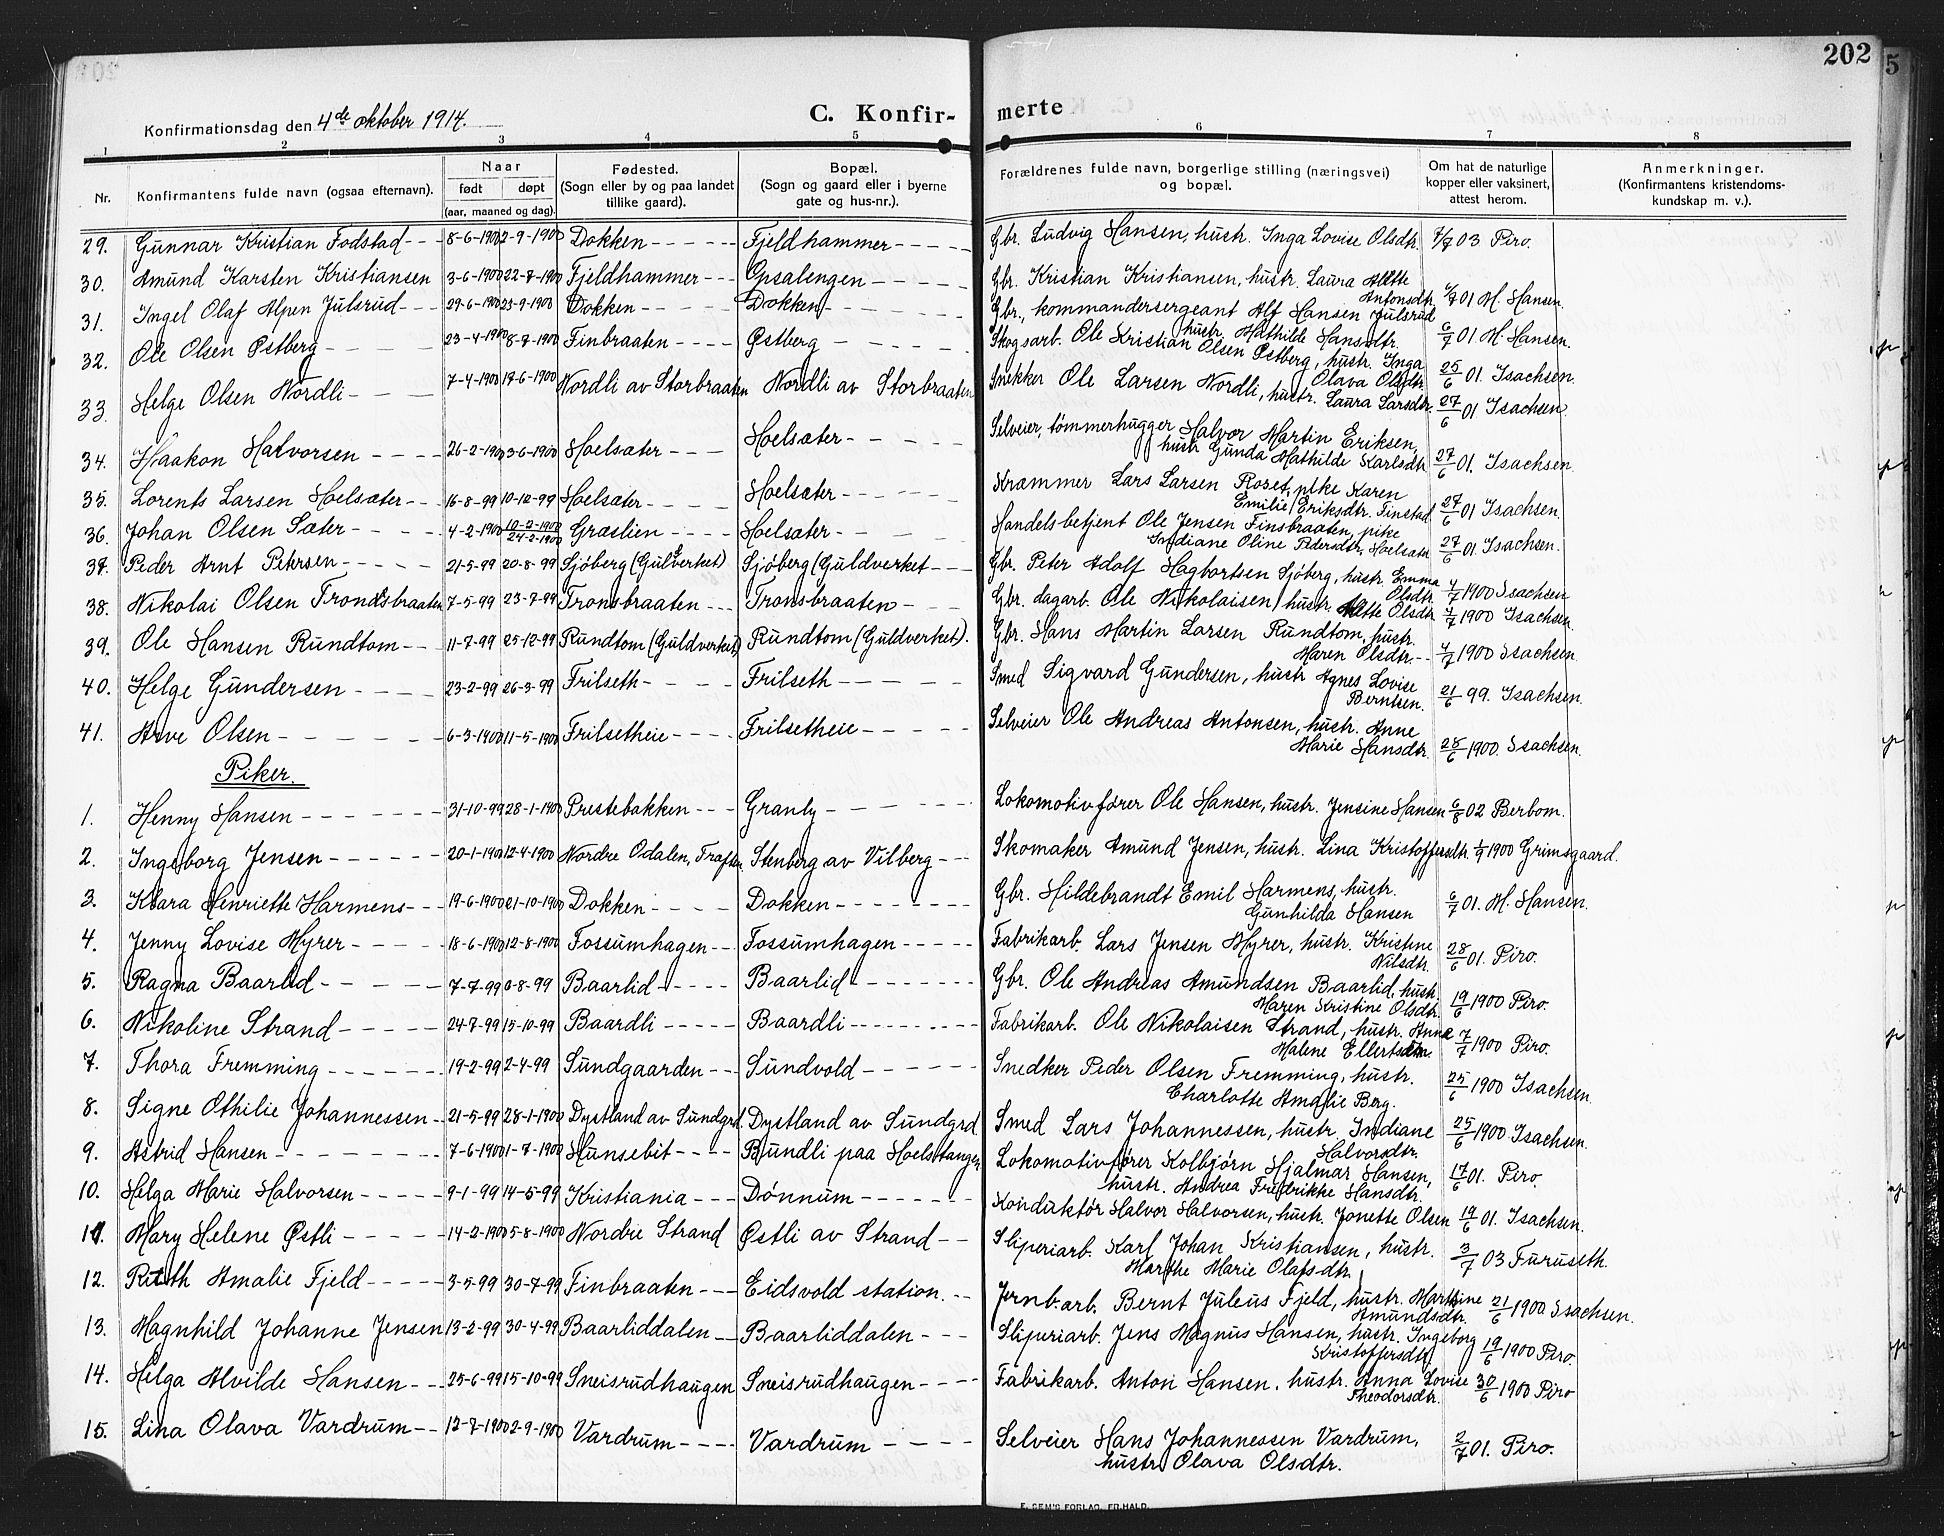 202
5
Konfirmationsdag den 4de oktober 1914.
C. Konfir- merte
1 2 3 4 5 6 7 8
Nr.
Konfirmantens fulde navn (ogsaa efternavn).
Naar
født døpt
(aar, maaned og dag).
Fødested.
(Sogn eller by og paa landet
tillike gaard).
Bopæl.
(Sogn og gaard eller i byerne
gate og hus-nr.).
Forældrenes fulde navn, borgerlige stilling (næringsvei)
og bopæl.
Om hat de naturlige
kopper eller vaksinert,
attest herom.
Anmerkninger.
(Konfirmantens kristendoms-
kundskap m. v.).
29. Gunnar Kristian Fodstad 8-6-1900 2-9-1900 Dokken Fjeldhammer Gbr. Ludvig Hansen, hustr. Inga Lovise Olsdtr. 7/7 03 Piro.
30. Amund Karsten Kristiansen 3-6-1900 22-7-1900 Fjeldhammer Opsalengen Gbr. Kristian Kristiansen, hustr. Laura Alette
Antonsdtr. 6/7 01 M. Hansen.
31. Ingel Olaf Alpen Julsrud 29-6-1900 23-9-1900 Dokken Dokken Gbr., kommandersergeant Alf Hansen Julsrud
hustr. Mathilde Hansdtr. 6/7 01 M. Hansen.
32. Ole Olsen Østberg 23-4-1900 8-7-1900 Finbraaten Østberg Skogsarb. Ole Kristian Olsen Østberg, hustr. Inga
Olava Olsdtr. 25/6 01. Isachsen.
33. Helge Olsen Nordli 7-4-1900 17-6-1900 Nordli av Storbraaten Nordli av Storbraaten Snekker Ole Larsen Nordli, hustr. Laura Larsdtr. 27/6 01 Isachsen.
34. Haakon Halvorsen 26-2-1900 3-6-1900 Hoelsæter Hoelsæter Selveier, tømmerhugger Halvor Martin Eriksen,
hustr Gunda Mathilde Karlsdtr 27/6 01. Isachsen.
35. Lorents Larsen Hoelsæter 16-8-99 10-12-99 Hoelsæter Hoelsæter Kræmmer Lars Larsen Roset, pike Karen
Emilie Eriksdtr. Finstad 27/6 01 Isachsen.
36. Johan Olsen Sæter 4-2-1900 10-2-1900
24-2-1900 Græslien Hoelsæter Handelsbetjent Ole Jensen Finsbraaten, pike
Indiane Oline Pedersdtr. Hoelsæter 27/6 01 Isachsen.
37. Peder Arnt Petersen 21-5-99 20-8-99 Sjöberg (Gulverket) Sjöberg (Guldverket Gbr. Peter Adolf Hagbortsen Sjöberg, hustr. Emma
Olsdtr. 4/7 1900 Isachsen
38. Nikolai Olsen Tronsbraaten 7-5-99 23-7-99 Tronsbraaten Tronsbraaten Gbr. dagarb. Ole Nikolaisen, hustr. Mette Olsdtr 4/7 1900 Isachsen.
39. Ole Hansen Rundtom 11-7-99 25-12-99 Rundtom (Guldverket) Rundtom (Guldverket). Gbr. Hans Martin Larsen Rundtom, hustr.
Maren Olsdtr. 4/7 1900 Isachsen
40. Helge Gundersen 23-2-99 26-3-99 Frilseth Frilseth Smed Sigvard Gundersen, hustr Agnes Lovise
Berntsen. 21/6 99. Isachsen.
41. Arve Olsen 6-3-1900 11-5-1900 Frilsetheie Frilsetheie Selveier Ole Andreas Antonsen, hustr. Anne
Marie Hansdtr. 28/6 1900. Isachsen.
Piker.
1. Henny Hansen 31-10-99 28-1-1900 Prestebakken Granly Lokomotivfører Ole Hansen, hustr. Jensine Hansen 6/8 02 Berbom.
2. Ingeborg Jensen 20-1-1900 12-4-1900 Nordre Odalen, Stenberg av Vilberg Skomaker Amund Jensen, hustr. Lina Kristoffersdtr. 1/9 1900 Grimsgaard.
3. Klara Henriette Harmens 19-6-1900 21-10-1900 Dokken Dokken Gbr. Hildebrandt Emil Harmens, hustr.
Gunhilda Hansen 6/7 01. M. Hansen.
4. Jenny Lovise Myrer 18-6-1900 12-8-1900 Fossumhagen Fossumhagen Fabrikarb. Lars Jensen Myrer, hustr. Kristine
Nilsdtr. 28/6 01. Piro.
5. Ragna Baarlid 7-7-99 0-8-99 Baarlid Baarlid Gbr. Ole Andreas Amundsen Baarlid, hustr.
Maren Kristine Olsdtr. 19/6 1900 Piro.
6. Nikoline Strand 24-7-99 15-10-99 Baardli Baardli Fabrikarb. Ole Nikolaisen Strand, hustr. Anne
Malene Ellertsdtr. 7/7 1900 Piro.
7. Thora Fremming 19-2-99 2-4-99 Sundgaarden Sundvold Snedker Peder Olsen Fremming, hustr.
Charlotte Amalie Berg. 25/6 1900 Isachsen.
8. Signe Othilie Johannessen 21-5-99 28-1-1900 Dystland av Sundgrd. Dystland av Sundgrd Smed Lars Johannessen, hustr. Indiane
Halvorsdtr. 25/6 1900 Isachsen.
9. Astrid Hansen 7-6-1900 1-7-1900 Hunsebit Bundli paa Hoelstangen Lokomotivfører Kolbjörn Hjalmar Hansen,
hustr. Andrea Fredrikke Hansdtr. 17/6 01. Piro.
10. Helga Marie Halvorsen 9-1-99 14-5-99 Kristiania Dönnum Konduktör Halvor Halvorsen, hustr. Jonette Olsen 19/6 01. Isachsen.
11. Mary Helene Østli 14-2-1900 5-8-1900 Nordre Strand Østli av Strand Sliperiarb. Karl Johan Kristiansen, hustr.
Marthe Marie Olafsdtr. 3/7 03 Furuseth.
12. Ruth Amalie Fjeld 3-5-99 30-7-99 Finbraaten Eidsvold station. Jernb.arb. Bernt Juleus Fjeld, hustr. Marthine
Amundsdtr. 21/6 1900 Isachsen.
13. Magnhild Johanne Jensen 13-2-99 30-4-99 Baarliddalen Baarliddalen Sliperiarb. Jens Magnus Hansen, hustr. Ingeborg
Kristoffersdtr. 19/6 1900 Piro.
14. Helga Alvilde Hansen 25-6-99 15-10-99 Sneisrudhaugen Sneisrudhaugen Fabrikarb. Anton Hansen, hustr. Anna Lovise
Theodorsdtr. 30/6 1900 Piro
15. Lina Olava Vardrum 12-7-1900 2-9-1900 Vardrum Vardrum Selveier Hans Johannessen Vardrum,
hustr. Olava Olsdtr. 2/7 01. Piro.
E. SEM'S FORLAG, FR.HALD.